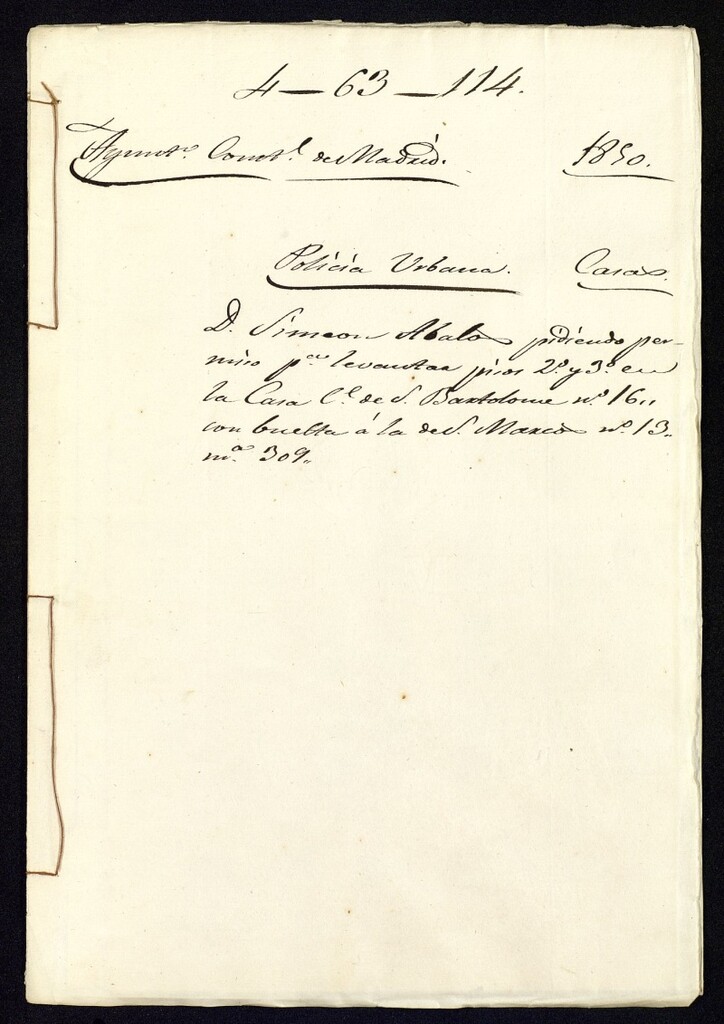 4 — 63 — 114.
Ayuntº. Constl. de Madrid. 1850.
Policia Urbana. Casas.
D. Simeon Abalos pidiendo per-
miso pª levantar pisos 2º y 3º en
la Casa Cе de S. Bartolome nº 16,,
con buelta á la de S. Marcos nº. 13,,
mª. 309,,